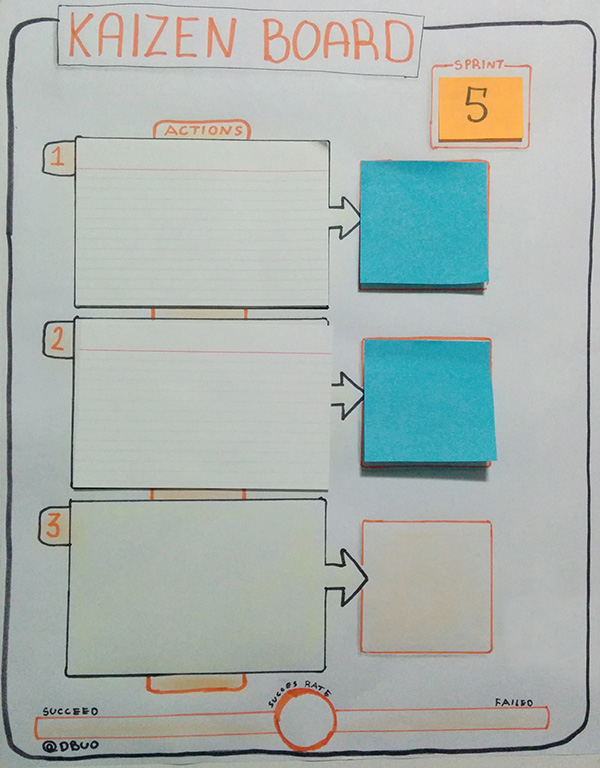 KAIZEN BOARD
SPRINT
5
ACTIONS
1
2
3
SUCCES RATE
SUCCEED
FAILED
@DBUO